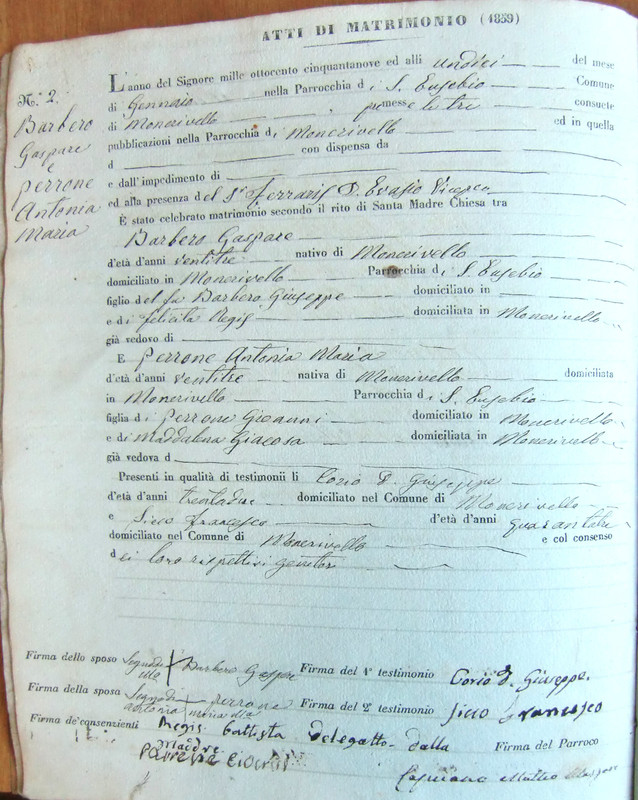 ATTI DI MATRIMONIO (1859)
N.° 2.
Barbero
Gaspare
e
Perrone
Antonia
Maria
L'anno del Signore mille ottocento cinquantanove ed alli undici del mese
di Gennaio nella Parrocchia di S. Eusebio Comune
di Moncrivello premesse le tre consuete
pubblicazioni nella Parrocchia di Moncrivello ed in quella
d con dispensa da
e dall'impedimento di
ed alla presenza del Sr Ferraris D. Evasio Vicepco
È stato celebrato matrimonio secondo il rito di Santa Madre Chiesa tra
Barbero Gaspare
d'età d'anni ventitre nativo di Moncrivello
domiciliato in Moncrivello Parrocchia di S. Eusebio
figlio del fu Barbero Giuseppe domiciliato in
e di felicita Regis domiciliata in Moncrivello
già vedovo di
E Perrone Antonia Maria
d'età d'anni ventitre nativa di Moncrivello domiciliata
in Moncrivello Parrocchia di S. Eusebio
figlia di Perrone Giovanni domiciliato in Moncrivello
e di Maddalena Giacosa domiciliata in Moncrivello
già vedova d
Presenti in qualità di testimonii li Corio D. Giuseppe
d'età d'anni trentadue domiciliato nel Comune di Moncrivello
e Sicco francesco d'età d'anni quarantatre
domiciliato nel Comune di Moncrivello e col consenso
dei loro rispettivi genitori
Firma dello sposo Barbero Gaspare Firma del 1° testimonio Corio D. Giuseppe.
Firma della sposa Perrone antonia maria Firma del 2° testimonio Sicco Francesco
Firma de'consenzienti Regis Battista delegatto dalla Firma del Parroco
madre
Matteo